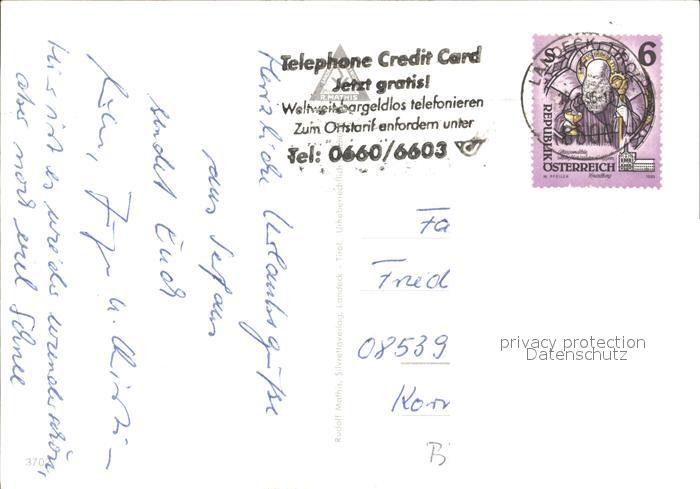 Telephone Credit Card
Jetzt gratis!
Weltweit bargeldlos telefonieren
Zum Ortstarif anfordern unter
Tel: 0660/6603
R. MATHIS
S 6
REPUBLIK
ÖSTERREICH
Herzliche Urlaubsgrüße
aus
sendet Euch
Hier ist es wieder wunderschön,
aber noch viel Schnee
Rudolf Mathis, Silvrettaverlag, Landeck - Tirol. Urheberrechtlich
Fa
Fried
08539
Korr
B
privacy protection
Datenschutz
370